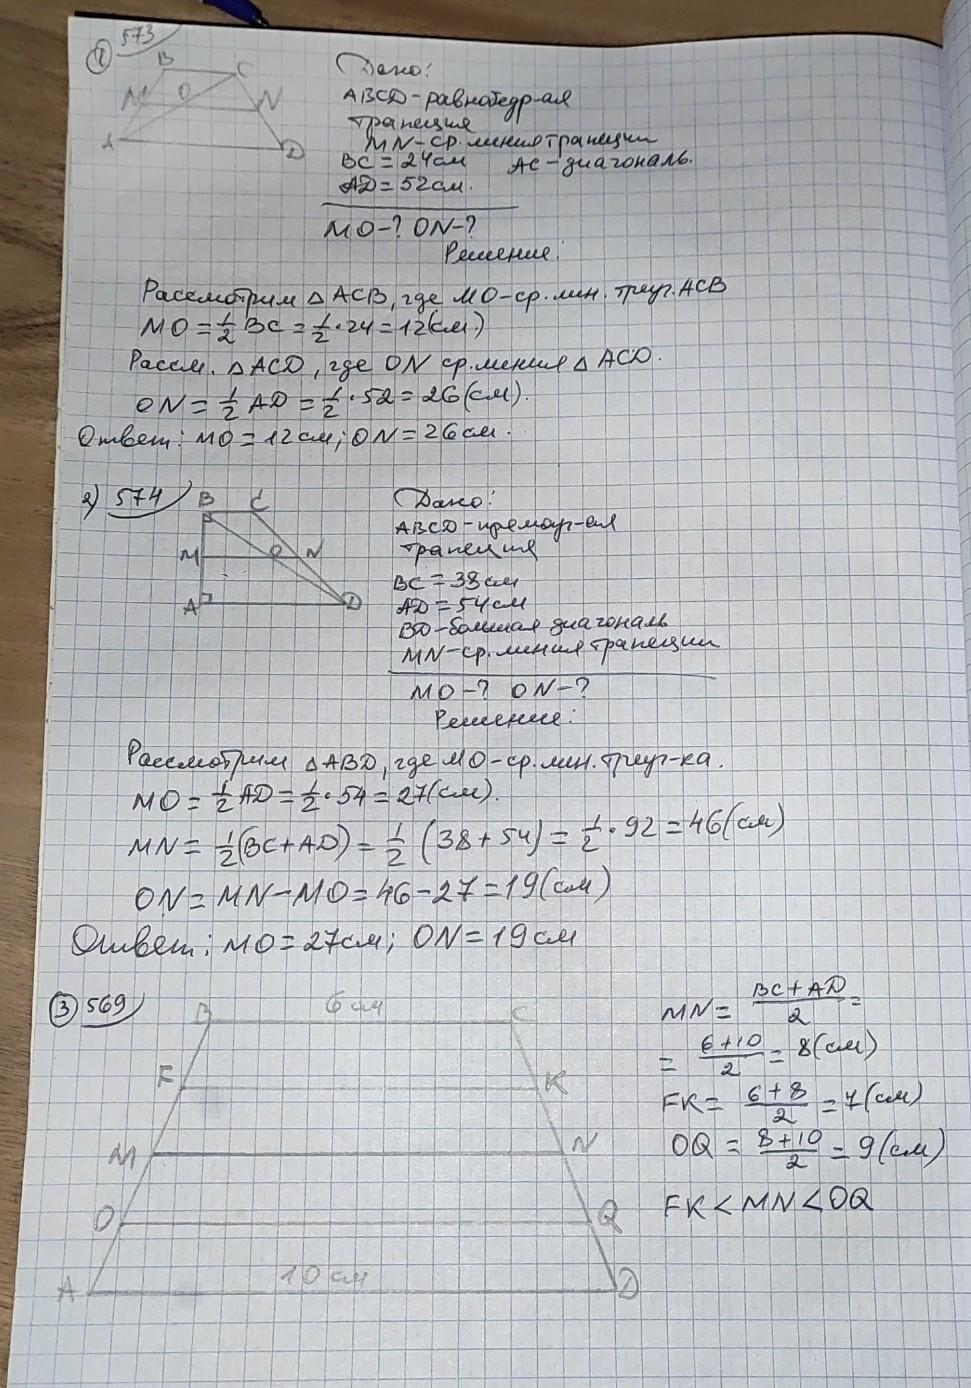 1 573
B C
M O N
A D
Дано:
ABCD-равнобедр-ая
трапеция
MN-ср.линия трапеции
BC=24см AC-диагональ.
AD=52см.
MO-? ON-?
Решение:
Рассмотрим △ACB, где MO-ср.лин. треуг.ACB
MO=½BC=½·24=12(см.)
Рассм. △ACD, где ON ср.линия △ACD.
ON=½AD=½·52=26(см).
Ответ: MO=12см; ON=26см.
2) 574
B C
M O N
A D
Дано:
ABCD-прямоуг-ая
трапеция
BC=38см
AD=54см
BD-большая диагональ
MN-ср.линия трапеции
MO-? ON-?
Решение:
Рассмотрим △ABD, где MO-ср.лин.треуг-ка.
MO=½AD=½·54=27(см).
MN=½(BC+AD)=½(38+54)=½·92=46(см)
ON=MN-MO=46-27=19(см)
Ответ: MO=27см; ON=19см
3 569
B 6 см C
F K
M N
O Q
A 10 см D
MN= (BC+AD)/2 =
= (6+10)/2 = 8(см)
FK= (6+8)/2 =7(см)
OQ= (8+10)/2 = 9(см)
FK<MN<OQ